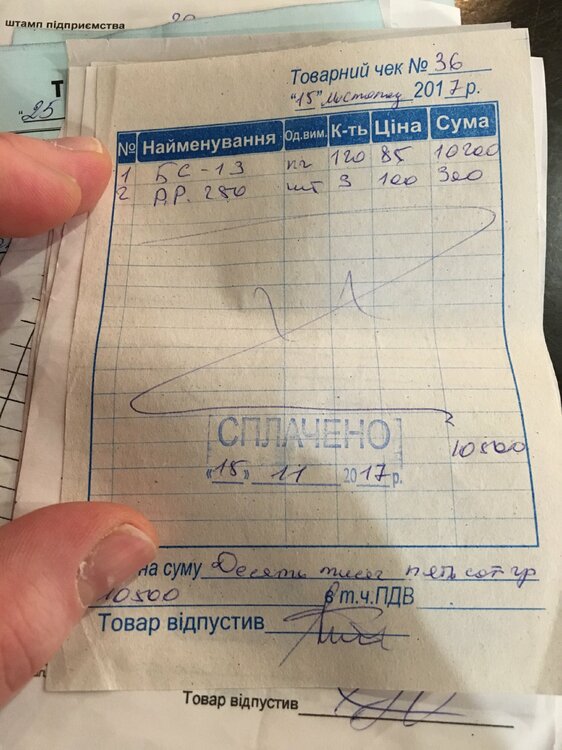 штамп підприємства
20
Т
"25
Товарний чек № 36
"15" листопад 2017 р.
№ Найменування Од.вим. К-ть Ціна Сума
1 БС-13 пг 120 85 10200
2 А.Р. 250 шт 3 100 300
СПЛАЧЕНО
10500
«15» 11 2017 р.
на суму Десять тисяч пять сот гр
10500 в т.ч.ПДВ
Товар відпустив
Товар відпустив